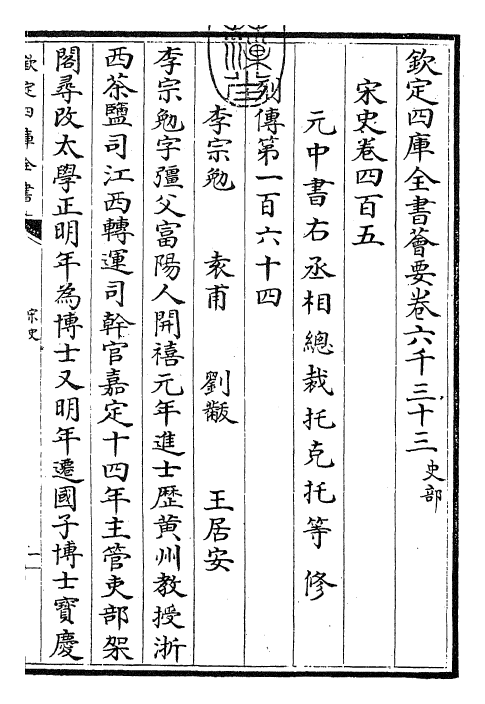 欽定四庫全書薈要卷六千三十三 史部
宋史卷四百五
元中書右丞相總裁托克托等修
列傳第一百六十四
李宗勉 袁甫 劉黻 王居安
李宗勉字彊父富陽人開禧元年進士歴黄州教授浙
西茶鹽司江西轉運司幹官嘉定十四年主管吏部架
閣尋改太學正明年為博士又明年遷國子博士寳慶
欽定四庫全書
宗史
一